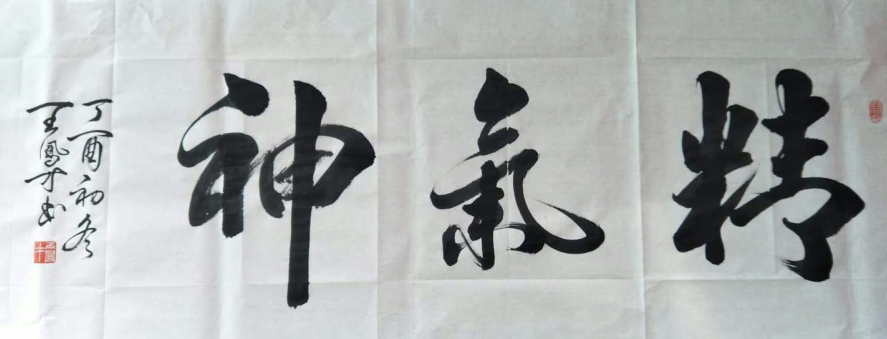 精氣神
丁酉初冬
王鳳才书